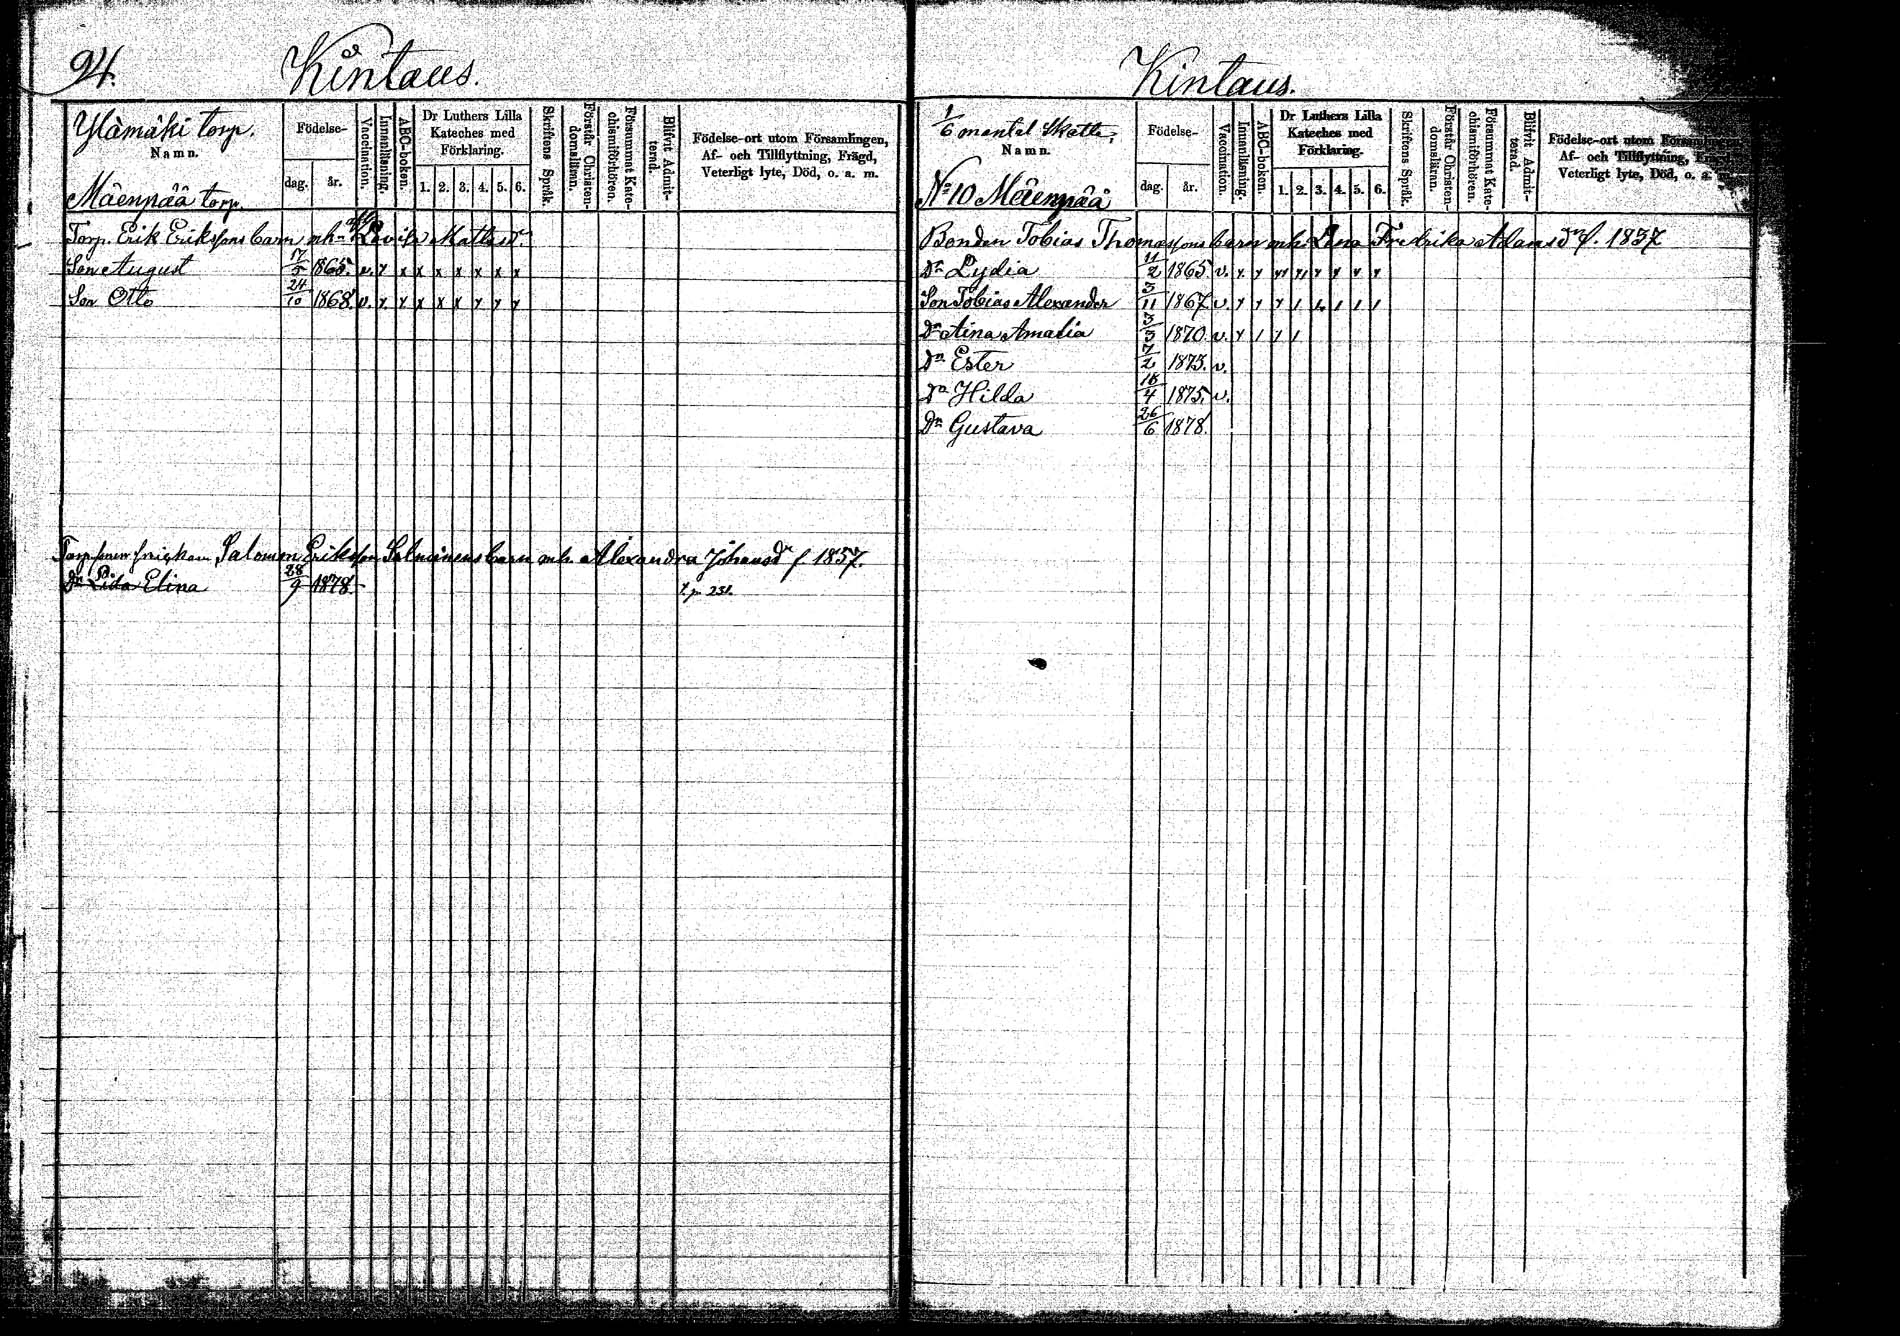 94.
Kintaus.
Ylämäki torp.
Namn.
Mäenpää torp.
Födelse-
dag.
år.
Vaccination.
Innanläsning.
ABC-boken.
Dr Luthers Lilla
Kateches med
Förklaring.
1. 2. 3. 4. 5. 6.
Skriftens Språk.
Förstår Christen-
domsläran.
Försummat Kate-
chismiförhören.
Blifvit Admit-
terad.
Födelse-ort utom Församlingen,
Af- och Tillflyttning, Frägd,
Veterligt lyte, Död, o. a. m.
Torp. Erik Erikssons barn mh. Lovisa Matlsdr.
Son August 17/5 1865. v. x x x x x x x x
Son Otto 24/10 1868. v. x x x x x x x x
Salomon Eriksson Salminens barn mh. Alexandra Johansdr f. 1857.
Dr Lida Elina 28/9 1878. t. p. 251.
Kintaus.
1/6 mantal Skatte,
Namn.
No 10 Mäenpää
Födelse-
dag.
år.
Vaccination.
Innanläsning.
ABC-boken.
Dr Luthers Lilla
Kateches med
Förklaring.
1. 2. 3. 4. 5. 6.
Skriftens Språk.
Förstår Christen-
domsläran.
Försummat Kate-
chismiförhören.
Blifvit Admit-
terad.
Födelse-ort utom Församlingen,
Af- och Tillflyttning, Frägd,
Veterligt lyte, Död, o. a. m.
Bonden Tobias Thomassons barn mh. Lina Fredrika Adamsdr f. 1837
Dr Lydia 11/2 1865. v. x x x x x x x x
Son Tobias Alexander 3/11 1867. v. x x x / x / / /
Dr Aina Amalia 3/3 1870. v. x / x /
Dr Ester 7/2 1873. v.
Dr Hilda 18/4 1875. v.
Dr Gustava 26/6 1878.